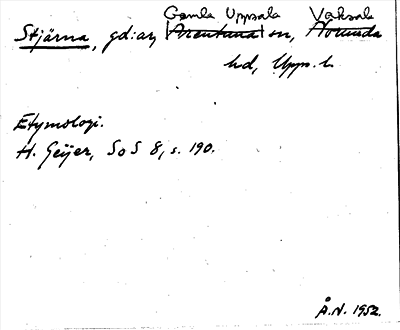 Gamla Uppsala Vaksala
Stjärna, gd:ar, Årentuna sn, Norunda
hd, Upps. l.
Etymologi.
H. Geijer, SoS 8, s. 190.
Å.N. 1952.